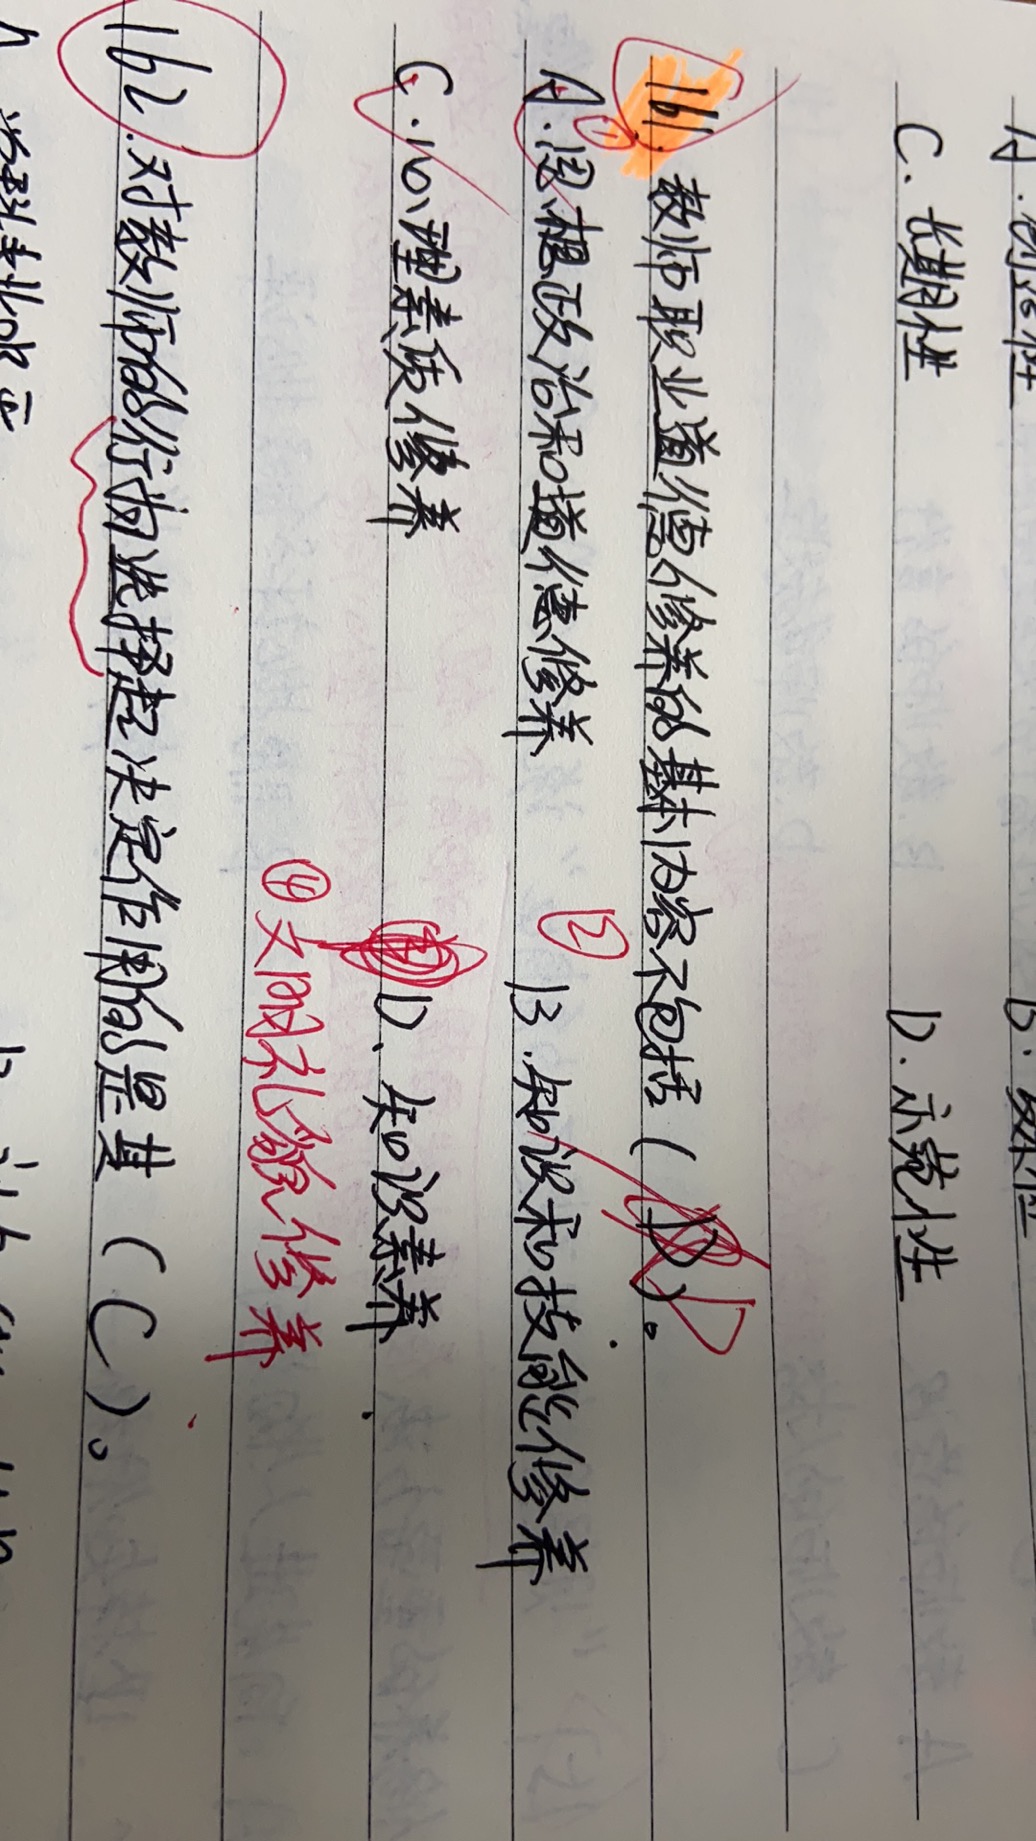 C.长期性 D.示范性
161.教师职业道德修养的基本内容不包括(D)。D
A.①思想政治和道德修养 ② B.知识和技能修养
C.心理素质修养 D.知识素养
④文明礼貌修养
162.对教师的行为选择起决定作用的是其(C)。